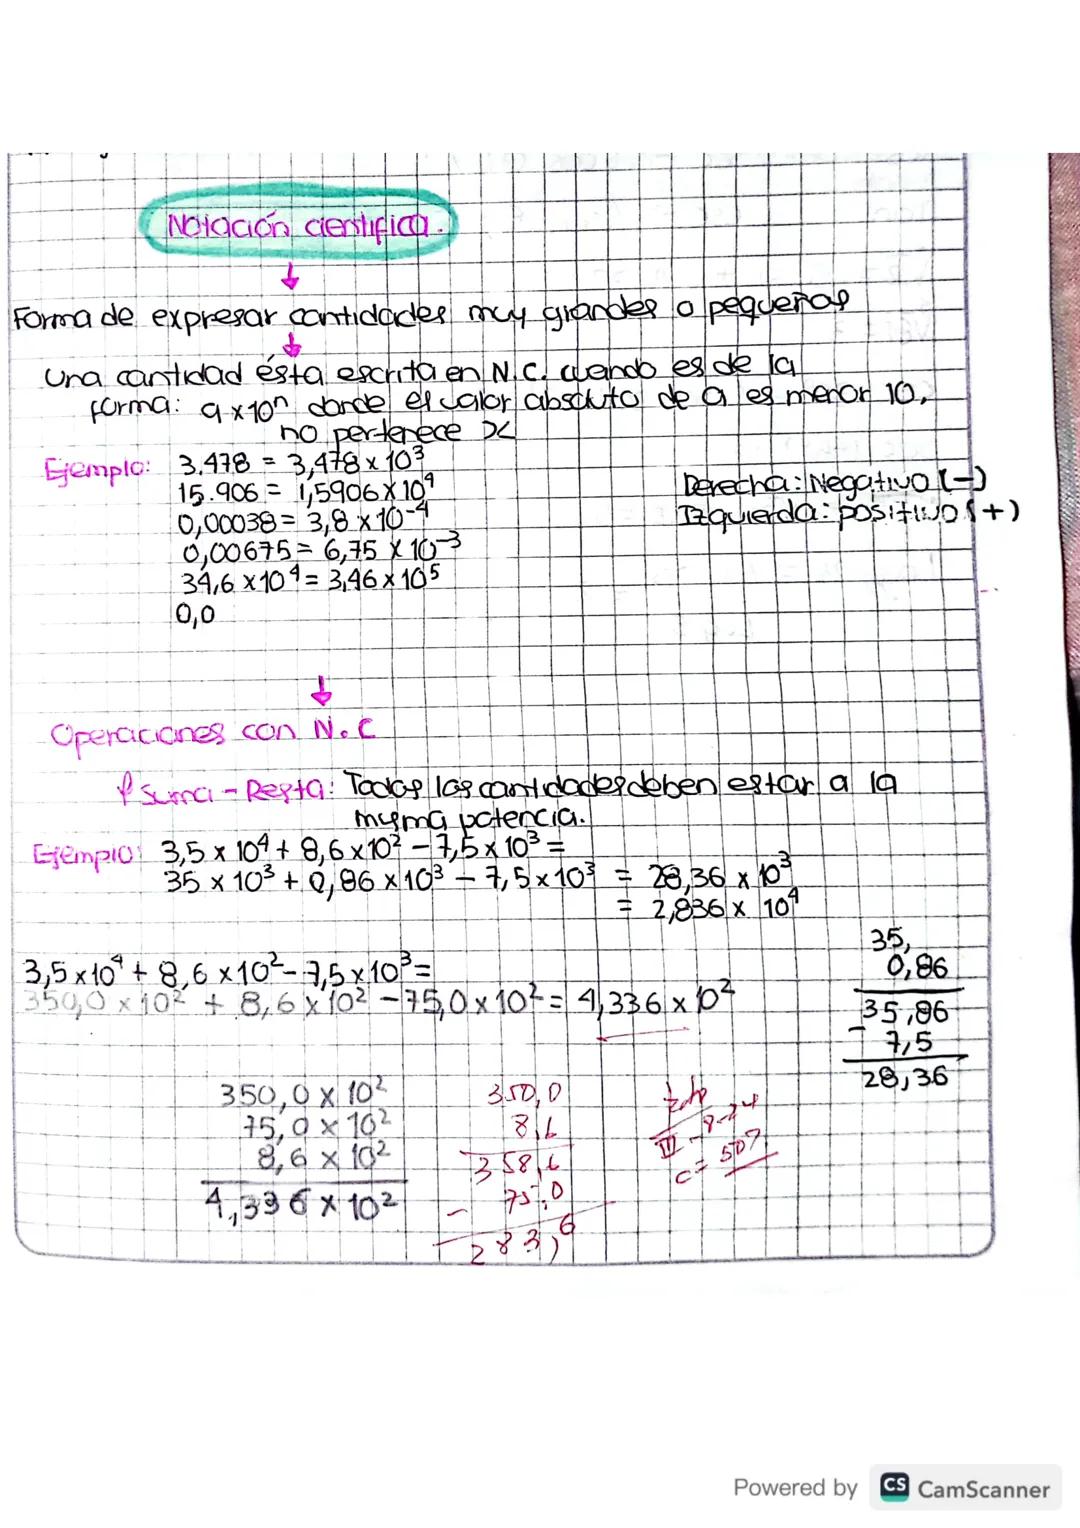 Notación cientifica.
Forma de expresar cantidades muy grandes o pequeñas
una cantidad ésta escrita en N.C. cuando es de la
forma: a x 10ⁿ donde el valor absoluto de a es menor 10,
no pertenece x
Ejemplo: 3.478 = 3,478 x 10³
15.906 = 1,5906 x 10⁴
0,00038 = 3,8 x 10⁻⁴
0,00675 = 6,75 x 10⁻³
34,6 x 10⁴ = 3,46 x 10⁵
0,0
Derecha: Negativo (-)
Izquierda: positivo (+)
Operaciones con N.C
Suma - Resta: Todas las cantidades deben estar a la
mysma potencia.
Ejemplo: 3,5 x 10⁴ + 8,6 x 10² - 7,5 x 10³ =
35 x 10³ + 0,86 x 10³ - 7,5 x 10³ = 28,36 x 10³
= 2,836 x 10⁴
35,
0,86
35,86
- 7,5
28,36
3,5 x 10⁴ + 8,6 x 10² - 7,5 x 10³ =
350,0 x 10² + 8,6 x 10² - 75,0 x 10² = 4,336 x 10²
350,0 x 10²
75,0 x 10²
8,6 x 10²
4,336 x 10²
350,0
8,6
358,6
- 75,0
283,6
III - 8-24
c = 507
Powered by CS CamScanner